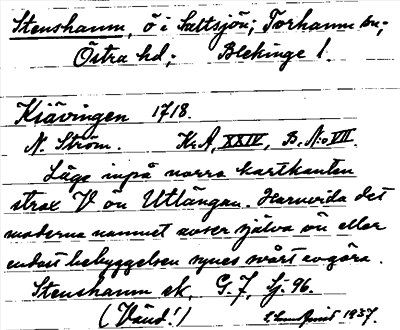 Stenshamn, ö i Saltsjön; Torhamn sn;
Östra hd; Blekinge l.
Ksävingen 1718.
N. Ström. K.A, XXIV, B. N:o VII.
Läge inpå norra kartkanten
strax V ön Utlängan. Huruvida det
moderna namnet avser själva ön eller
endast bebyggelsen synes svårt avgöra.
Stenshamn ek. G. 7, Sj. 96.
(Vänd!) 1937.